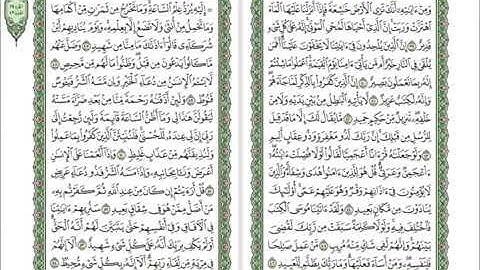 وَمِنْ ءَايَٰتِهِۦٓ أَنَّكَ تَرَى ٱلْأَرْضَ خَٰشِعَةً فَإِذَآ أَنزَلْنَا عَلَيْهَا ٱلْمَآءَ
ٱهْتَزَّتْ وَرَبَتْ إِنَّ ٱلَّذِىٓ أَحْيَاهَا لَمُحْىِ ٱلْمَوْتَىٰٓ إِنَّهُۥ عَلَىٰ كُلِّ شَىْءٍ
قَدِيرٌ ٣٩ إِنَّ ٱلَّذِينَ يُلْحِدُونَ فِىٓ ءَايَٰتِنَا لَا يَخْفَوْنَ عَلَيْنَآ أَفَمَن
يُلْقَىٰ فِى ٱلنَّارِ خَيْرٌ أَم مَّن يَأْتِىٓ ءَامِنًا يَوْمَ ٱلْقِيَٰمَةِ ٱعْمَلُوا۟ مَا شِئْتُمْ
إِنَّهُۥ بِمَا تَعْمَلُونَ بَصِيرٌ ٤٠ إِنَّ ٱلَّذِينَ كَفَرُوا۟ بِٱلذِّكْرِ لَمَّا جَآءَهُمْ
وَإِنَّهُۥ لَكِتَٰبٌ عَزِيزٌ ٤١ لَّا يَأْتِيهِ ٱلْبَٰطِلُ مِنۢ بَيْنِ يَدَيْهِ وَلَا مِنْ
خَلْفِهِۦ تَنزِيلٌ مِّنْ حَكِيمٍ حَمِيدٍ ٤٢ مَّا يُقَالُ لَكَ إِلَّا مَا قَدْ قِيلَ
لِلرُّسُلِ مِن قَبْلِكَ إِنَّ رَبَّكَ لَذُو مَغْفِرَةٍ وَذُو عِقَابٍ أَلِيمٍ ٤٣
وَلَوْ جَعَلْنَٰهُ قُرْءَانًا أَعْجَمِيًّا لَّقَالُوا۟ لَوْلَا فُصِّلَتْ ءَايَٰتُهُۥٓ
ءَا۬عْجَمِىٌّ وَعَرَبِىٌّ قُلْ هُوَ لِلَّذِينَ ءَامَنُوا۟ هُدًى وَشِفَآءٌ وَٱلَّذِينَ
لَا يُؤْمِنُونَ فِىٓ ءَاذَانِهِمْ وَقْرٌ وَهُوَ عَلَيْهِمْ عَمًى أُو۟لَٰٓئِكَ
يُنَادَوْنَ مِن مَّكَانٍۭ بَعِيدٍ ٤٤ وَلَقَدْ ءَاتَيْنَا مُوسَى ٱلْكِتَٰبَ
فَٱخْتُلِفَ فِيهِ وَلَوْلَا كَلِمَةٌ سَبَقَتْ مِن رَّبِّكَ لَقُضِىَ بَيْنَهُمْ
وَإِنَّهُمْ لَفِى شَكٍّ مِّنْهُ مُرِيبٍ ٤٥ مَّنْ عَمِلَ صَٰلِحًا
فَلِنَفْسِهِۦ وَمَنْ أَسَآءَ فَعَلَيْهَا وَمَا رَبُّكَ بِظَلَّٰمٍ لِّلْعَبِيدِ ٤٦
إِلَيْهِ يُرَدُّ عِلْمُ ٱلسَّاعَةِ وَمَا تَخْرُجُ مِن ثَمَرَٰتٍ مِّنْ أَكْمَامِهَا
وَمَا تَحْمِلُ مِنْ أُنثَىٰ وَلَا تَضَعُ إِلَّا بِعِلْمِهِۦ وَيَوْمَ يُنَادِيهِمْ أَيْنَ
شُرَكَآءِى قَالُوٓا۟ ءَاذَنَّٰكَ مَا مِنَّا مِن شَهِيدٍ ٤٧ وَضَلَّ عَنْهُم
مَّا كَانُوا۟ يَدْعُونَ مِن قَبْلُ وَظَنُّوا۟ مَا لَهُم مِّن مَّحِيصٍ ٤٨
لَّا يَسْـَٔمُ ٱلْإِنسَٰنُ مِن دُعَآءِ ٱلْخَيْرِ وَإِن مَّسَّهُ ٱلشَّرُّ فَيَـُٔوسٌ
قَنُوطٌ ٤٩ وَلَئِنْ أَذَقْنَٰهُ رَحْمَةً مِّنَّا مِنۢ بَعْدِ ضَرَّآءَ مَسَّتْهُ
لَيَقُولَنَّ هَٰذَا لِى وَمَآ أَظُنُّ ٱلسَّاعَةَ قَآئِمَةً وَلَئِن رُّجِعْتُ إِلَىٰ
رَبِّىٓ إِنَّ لِى عِندَهُۥ لَلْحُسْنَىٰ فَلَنُنَبِّئَنَّ ٱلَّذِينَ كَفَرُوا۟ بِمَا عَمِلُوا۟
وَلَنُذِيقَنَّهُم مِّنْ عَذَابٍ غَلِيظٍ ٥٠ وَإِذَآ أَنْعَمْنَا عَلَى ٱلْإِنسَٰنِ
أَعْرَضَ وَنَـَٔا بِجَانِبِهِۦ وَإِذَا مَسَّهُ ٱلشَّرُّ فَذُو دُعَآءٍ عَرِيضٍ
٥١ قُلْ أَرَءَيْتُمْ إِن كَانَ مِنْ عِندِ ٱللَّهِ ثُمَّ كَفَرْتُم بِهِۦ
مَنْ أَضَلُّ مِمَّنْ هُوَ فِى شِقَاقٍۭ بَعِيدٍ ٥٢ سَنُرِيهِمْ ءَايَٰتِنَا
فِى ٱلْءَافَاقِ وَفِىٓ أَنفُسِهِمْ حَتَّىٰ يَتَبَيَّنَ لَهُمْ أَنَّهُ ٱلْحَقُّ
أَوَلَمْ يَكْفِ بِرَبِّكَ أَنَّهُۥ عَلَىٰ كُلِّ شَىْءٍ شَهِيدٌ ٥٣ أَلَآ إِنَّهُمْ
فِى مِرْيَةٍ مِّن لِّقَآءِ رَبِّهِمْ أَلَآ إِنَّهُۥ بِكُلِّ شَىْءٍ مُّحِيطٌۢ ٥٤